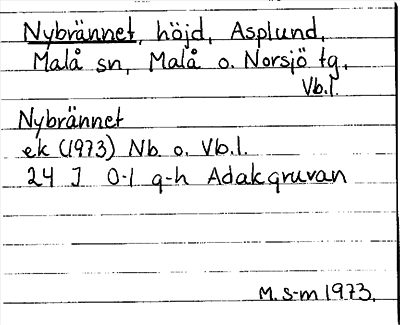 Nybrännet, höjd, Asplund,
Malå sn, Malå o. Norsjö tg.
Vb.l.
Nybrännet
ek (1973) Nb. o. Vb.l.
24 J 0-1 g-h Adakgruvan
M. S-m 1973.